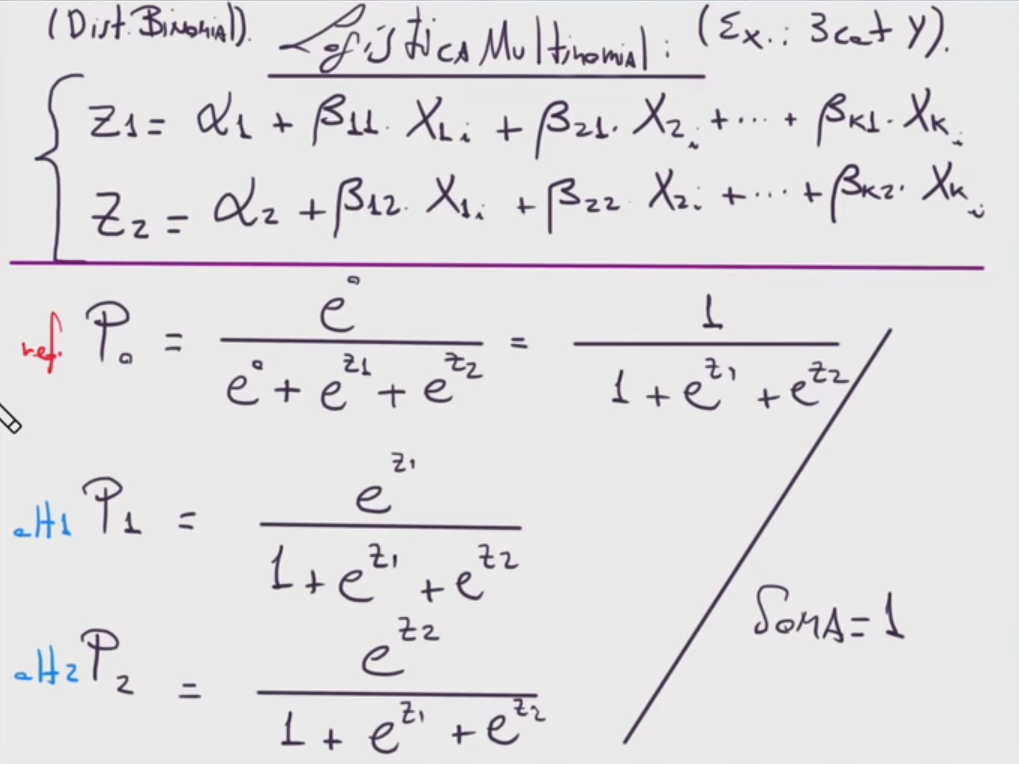 (Dist. Binomial). Logística Multinomial: (Ex.: 3cat Y).
Z1 = α1 + β11. X1i + β21. X2i + ... + βK1. XKi
Z2 = α2 + β12. X1i + β22 X2i + ... + βK2. XKi
ref. P0 = e^0 / (e^0 + e^Z1 + e^Z2) = 1 / (1 + e^Z1 + e^Z2)
alt1 P1 = e^Z1 / (1 + e^Z1 + e^Z2)
Soma = 1
alt2 P2 = e^Z2 / (1 + e^Z1 + e^Z2)